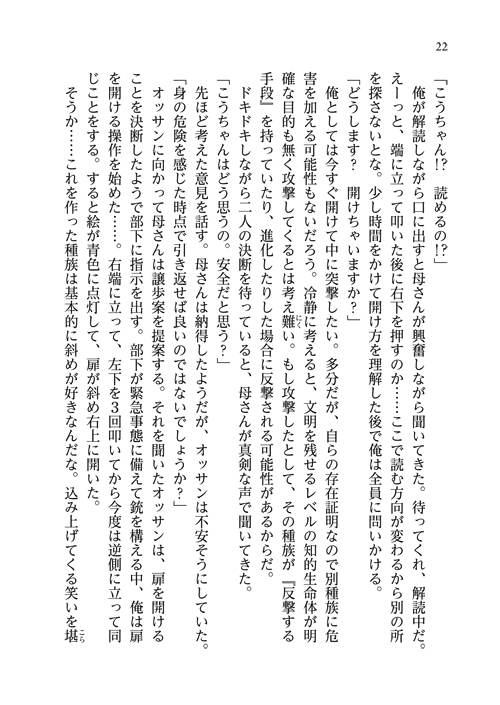 22
「こうちゃん!?　読めるの!?」
　俺が解読しながら口に出すと母さんが興奮しながら聞いてきた。待ってくれ、解読中だ。
えーっと、端に立って叩いた後に右下を押すのか……ここで読む方向が変わるから別の所
を探さないとな。少し時間をかけて開け方を理解した後で俺は全員に問いかける。
「どうします？　開けちゃいますか？」
　俺としては今すぐ開けて中に突撃したい。多分だが、自らの存在証明なので別種族に危
害を加える可能性もないだろう。冷静に考えると、文明を残せるレベルの知的生命体が明
確な目的も無く攻撃してくるとは考え難い。もし攻撃したとして、その種族が『反撃する
手段』を持っていたり、進化したりした場合に反撃される可能性があるからだ。
　ドキドキしながら二人の決断を待っていると、母さんが真剣な声で聞いてきた。
「こうちゃんはどう思うの。安全だと思う？」
　先ほど考えた意見を話す。母さんは納得したようだが、オッサンは不安そうにしていた。
「身の危険を感じた時点で引き返せば良いのではないでしょうか？」
　オッサンに向かって母さんは譲歩案を提案する。それを聞いたオッサンは、扉を開ける
ことを決断したようで部下に指示を出す。部下が緊急事態に備えて銃を構える中、俺は扉
を開ける操作を始めた……。右端に立って、左下を３回叩いてから今度は逆側に立って同
じことをする。すると絵が青色に点灯して、扉が斜め右上に開いた。
　そうか……これを作った種族は基本的に斜めが好きなんだな。込み上げてくる笑いを堪
にく
こら